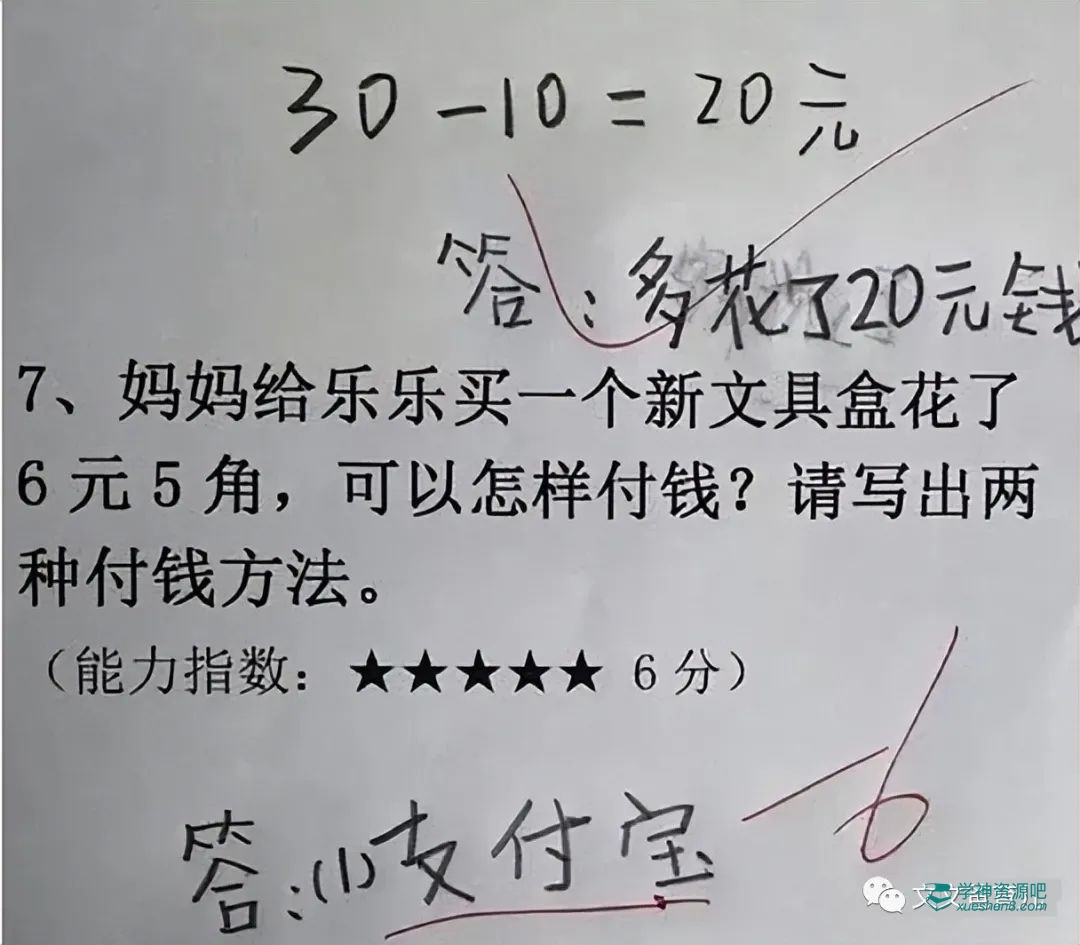 30-10=20元
答：多花了20元钱
7、妈妈给乐乐买一个新文具盒花了
6元5角，可以怎样付钱？请写出两
种付钱方法。
（能力指数：★★★★★ 6分）
-6
答：(1)支付宝
学神资源吧
xueshen8.com